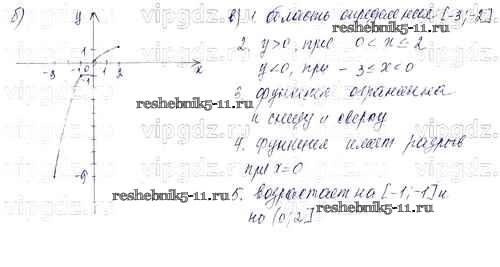 б)
y
1
-3
-1
0
1
2
x
-1
-9
в) 1. область определения [-3;-2]
2. y>0, при 0<x≤2
y<0, при -3≤x<0
3. функция ограничена
и снизу и сверху
4. функция имеет разрыв
при x=0
5. возрастает на [-1;-1] и
на (0;2]
reshebnik5-11.ru
reshebnik5-11.ru
reshebnik5-11.ru
reshebnik5-11.ru
vipgdz.ru